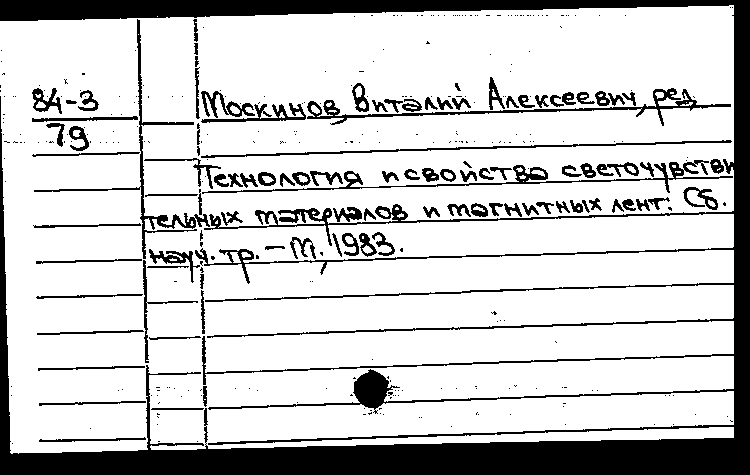 84-3
79
Москинов, Виталий Алексеевич, ред.
Технология и свойства светочувстви
тельных материалов и магнитных лент: Сб.
науч. тр. – М., 1983.